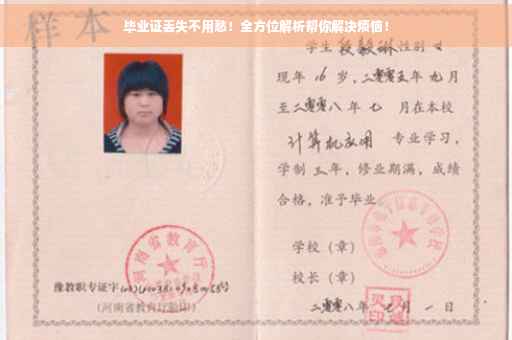 毕业证丢失不用愁！全方位解析帮你解决烦恼！
样本
学生 段毅琳 性别 女
现年 16 岁，二零零五年 九 月
至二零零八 年 七 月在本校
计算机应用 专业学习，
学制 三 年，修业期满，成绩
合格，准予毕业
学校（章）
校长（章）
二零零八年 七 月 一 日
河南省教育厅
豫教职专证字
（河南省教育厅验印）